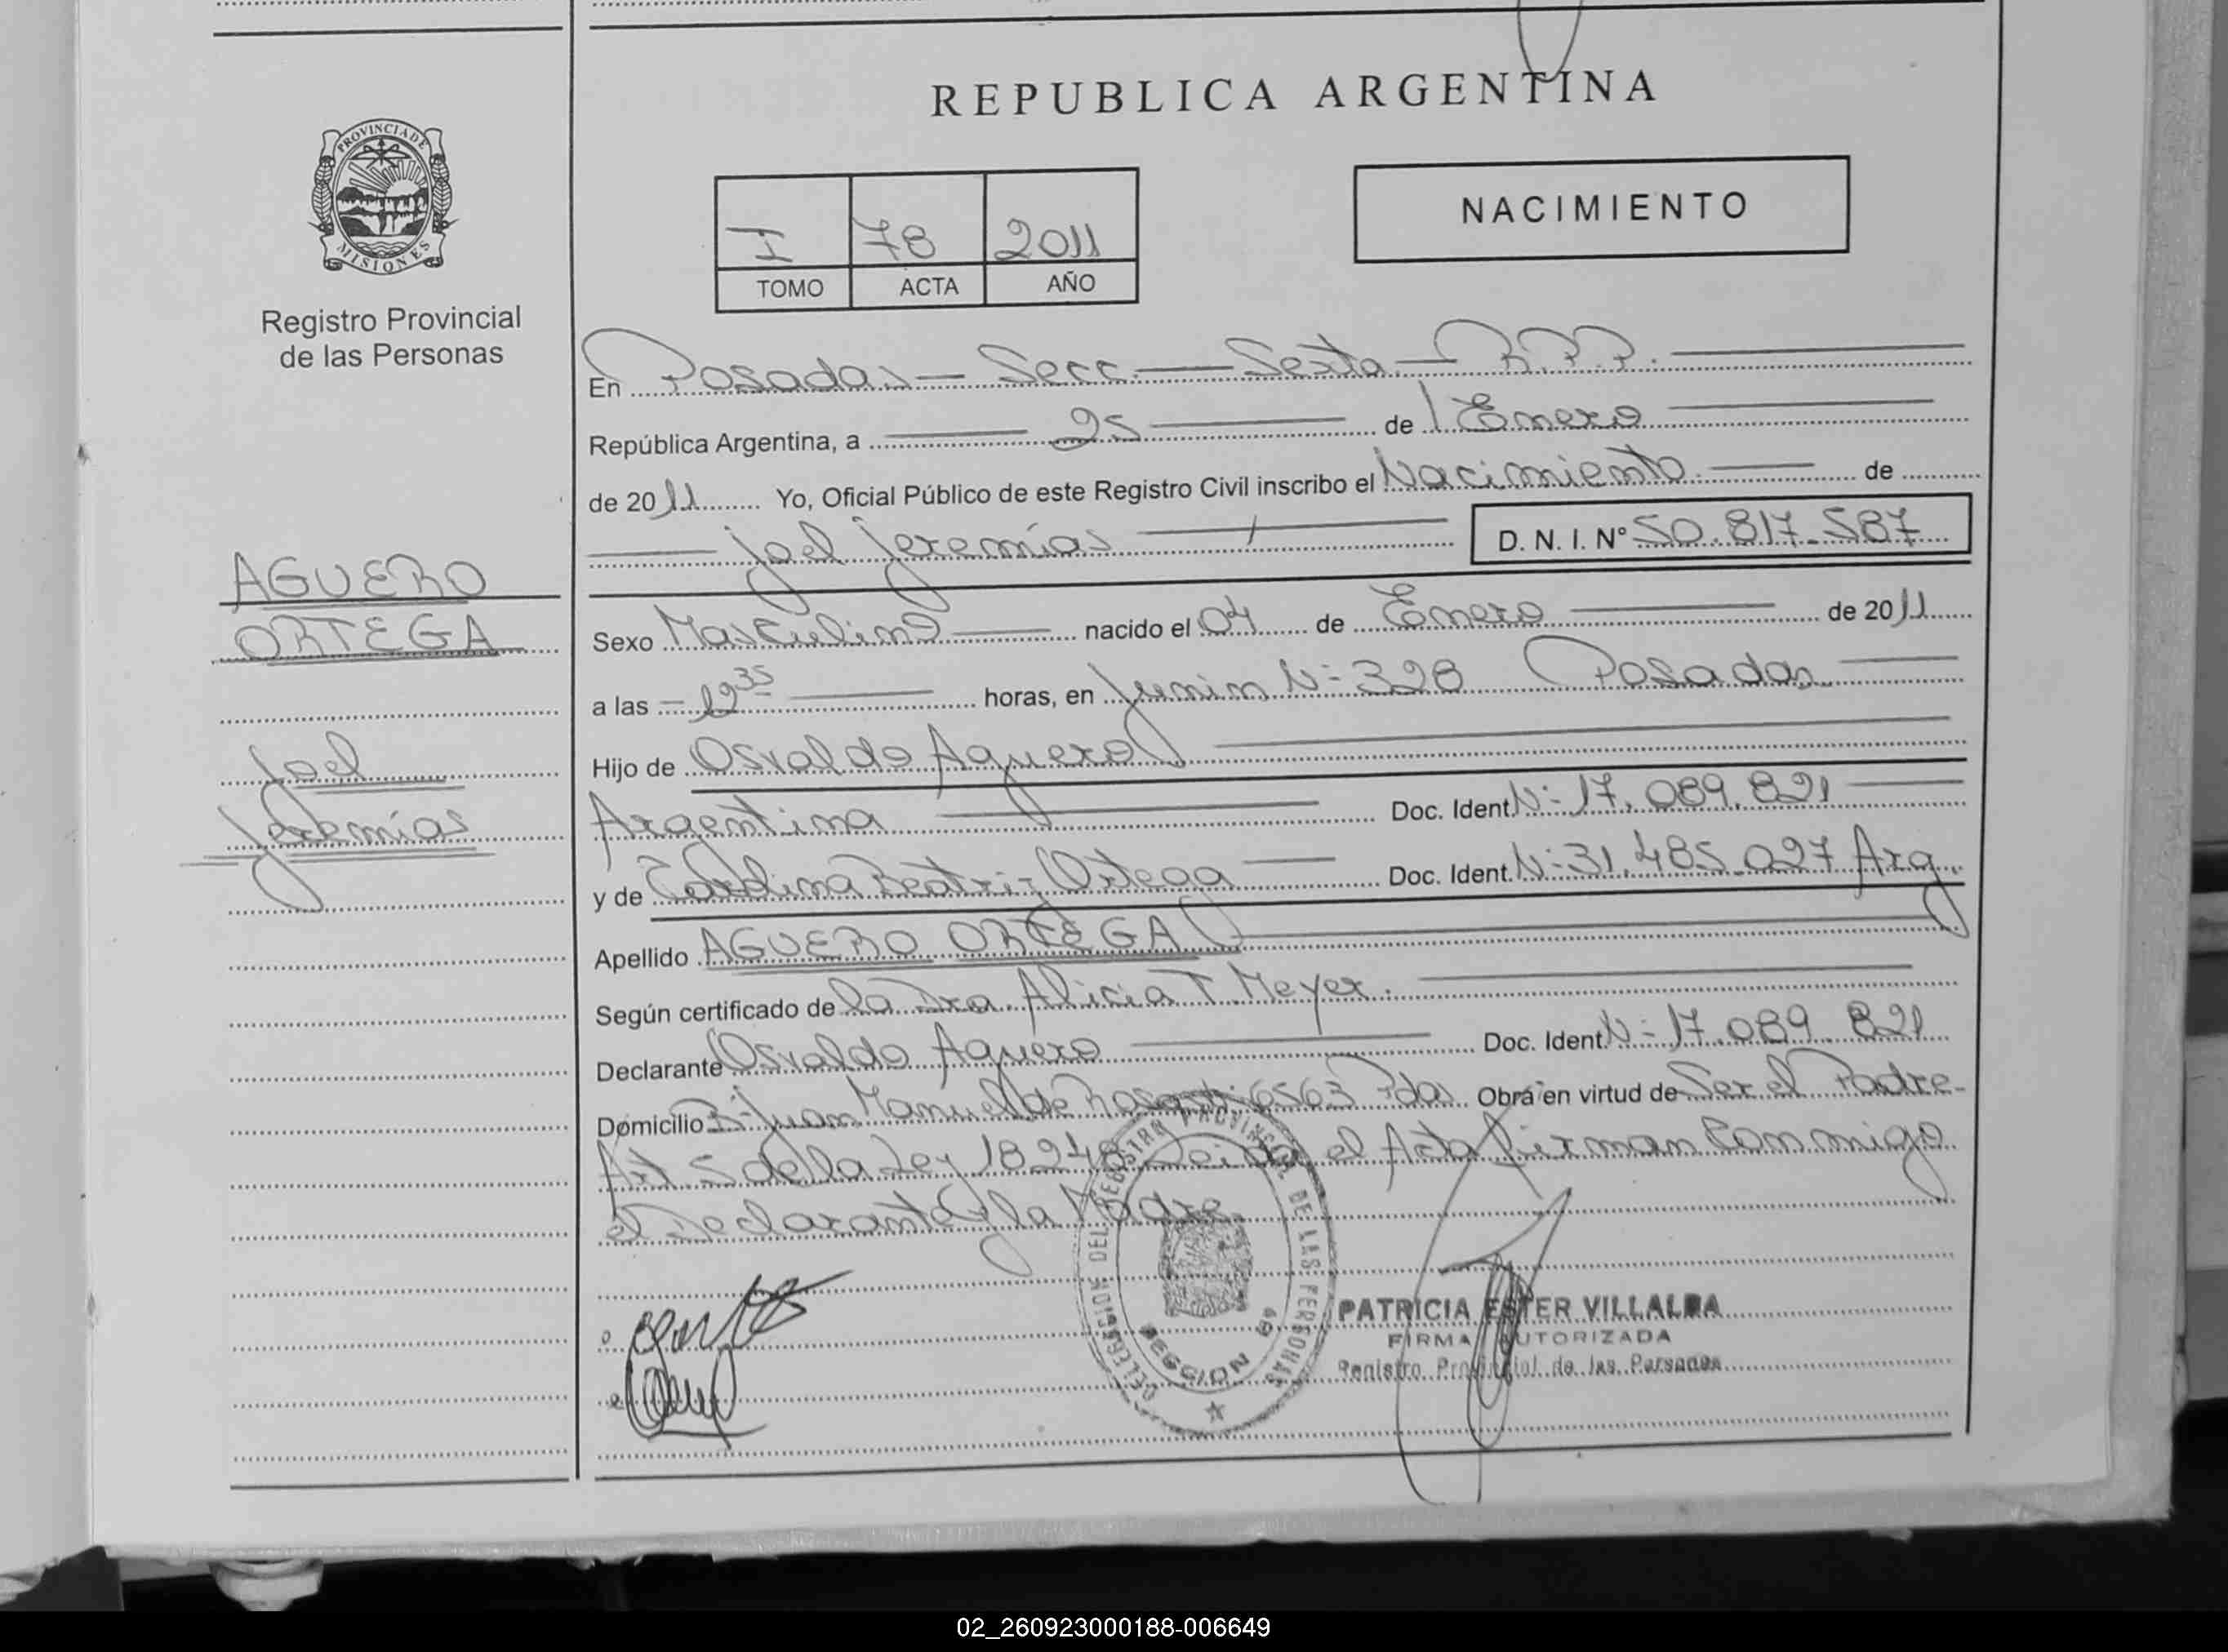 REPUBLICA ARGENTINA
PROVINCIA DE
MISIONES
Registro Provincial
de las Personas
I 78 2011
TOMO ACTA AÑO
NACIMIENTO
En Posadas - Secc. - Sexta - R.P.P.
República Argentina, a 25 de Enero
de 2011 Yo, Oficial Público de este Registro Civil inscribo el Nacimiento de
Joel Jeremías D. N. I. N° 50.817.587
AGUERO
ORTEGA
Joel
Jeremías
Sexo Masculino nacido el 04 de Enero de 2011
a las 12 35 horas, en Junin N- 328 Posadas
Hijo de Osvaldo Aguero
Argentina Doc. Ident. N- 17.089.821
y de Beatriz Ortega Doc. Ident. N- 31.485.027 Arg
Apellido AGUERO ORTEGA
Según certificado de la Dra. Alicia T. Meyer.
Declarante Osvaldo Aguero Doc. Ident. N- 17.089.821
Domicilio B- Juan Manuel de Rosas 6563 Pdas Obra en virtud de Ser el Padre-
Art. 5 de la Ley 18248 Leida el Acta firman Conmigo
el Declarante y la Madre.
DELEGACION DEL REGISTRO PROVINCIAL DE LAS PERSONAS
SECCION 6ª
PATRICIA ESTER VILLALBA
FIRMA AUTORIZADA
Registro Provincial de las Personas
02_260923000188-006649